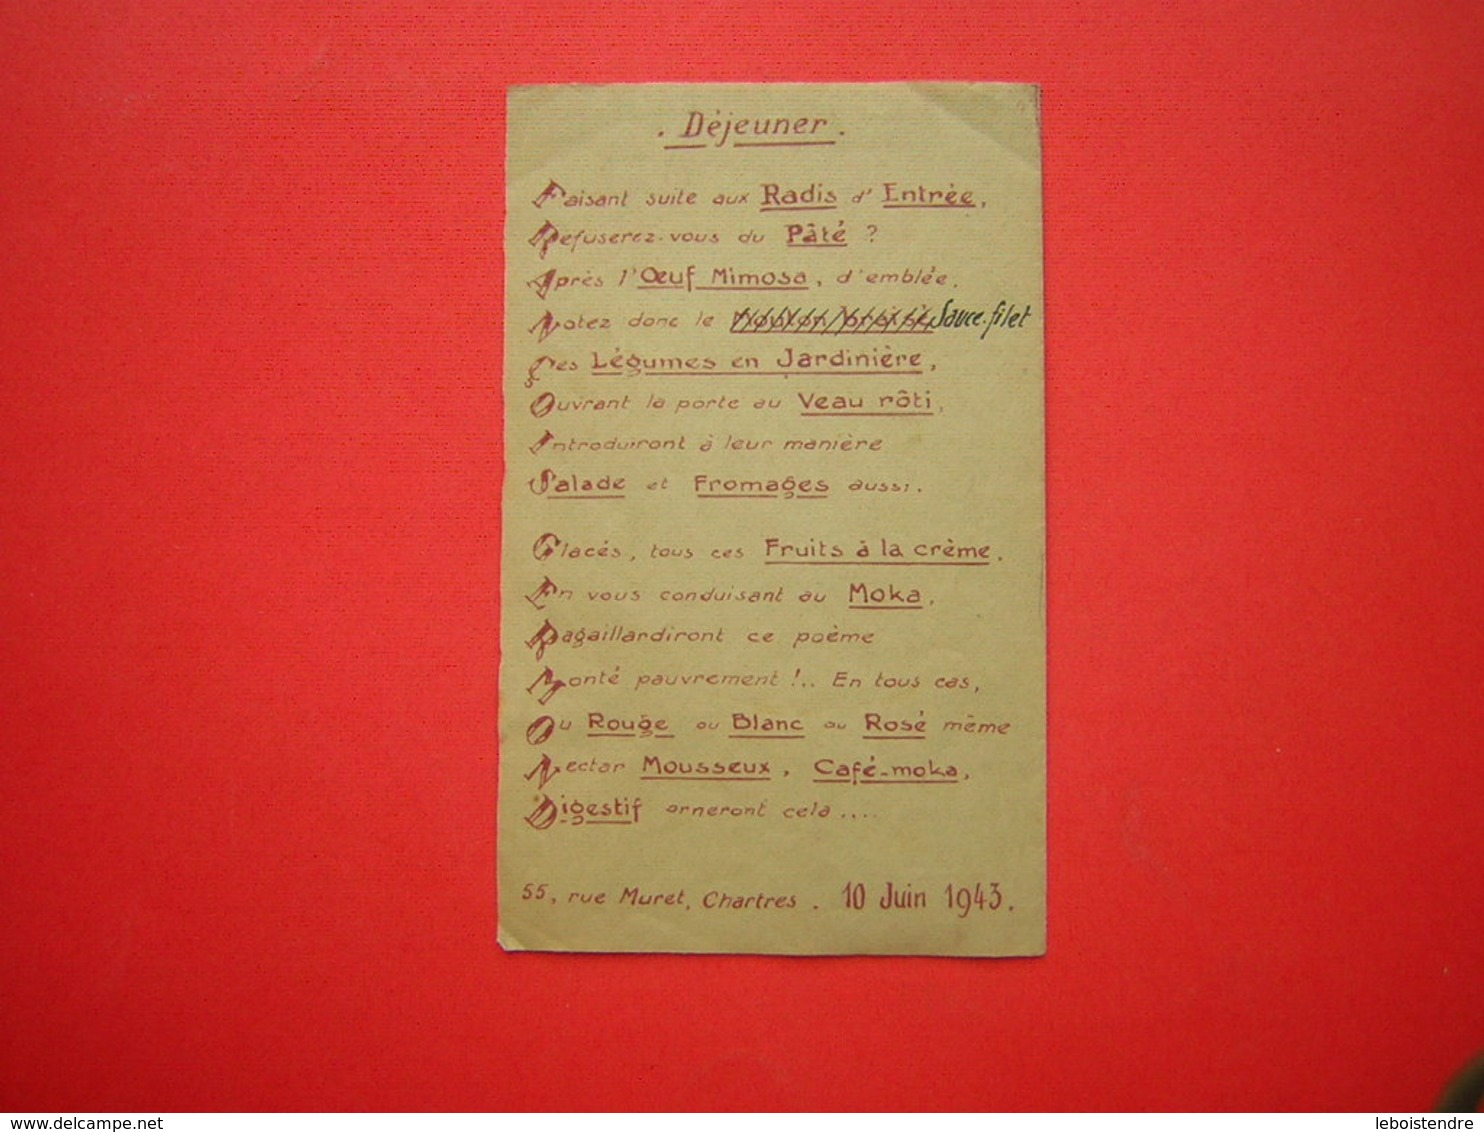 . Déjeuner .
Faisant suite aux Radis d'Entrée,
Refuserez-vous du Pâté ?
Après l'Œuf Mimosa, d'emblée,
Notez donc le Mouton braisé Sauce-filet
Ces Légumes en Jardinière,
Ouvrant la porte au Veau rôti,
Introduiront à leur manière
Salade et Fromages aussi.
Glacés, tous ces Fruits à la crème,
En vous conduisant au Moka,
Ragaillardiront ce poème
Monté pauvrement !.. En tous cas,
Ou Rouge ou Blanc ou Rosé même
Nectar Mousseux, Café-moka,
Digestif orneront cela....
55, rue Muret, Chartres . 10 Juin 1943.
www.delcampe.net
leboistendre